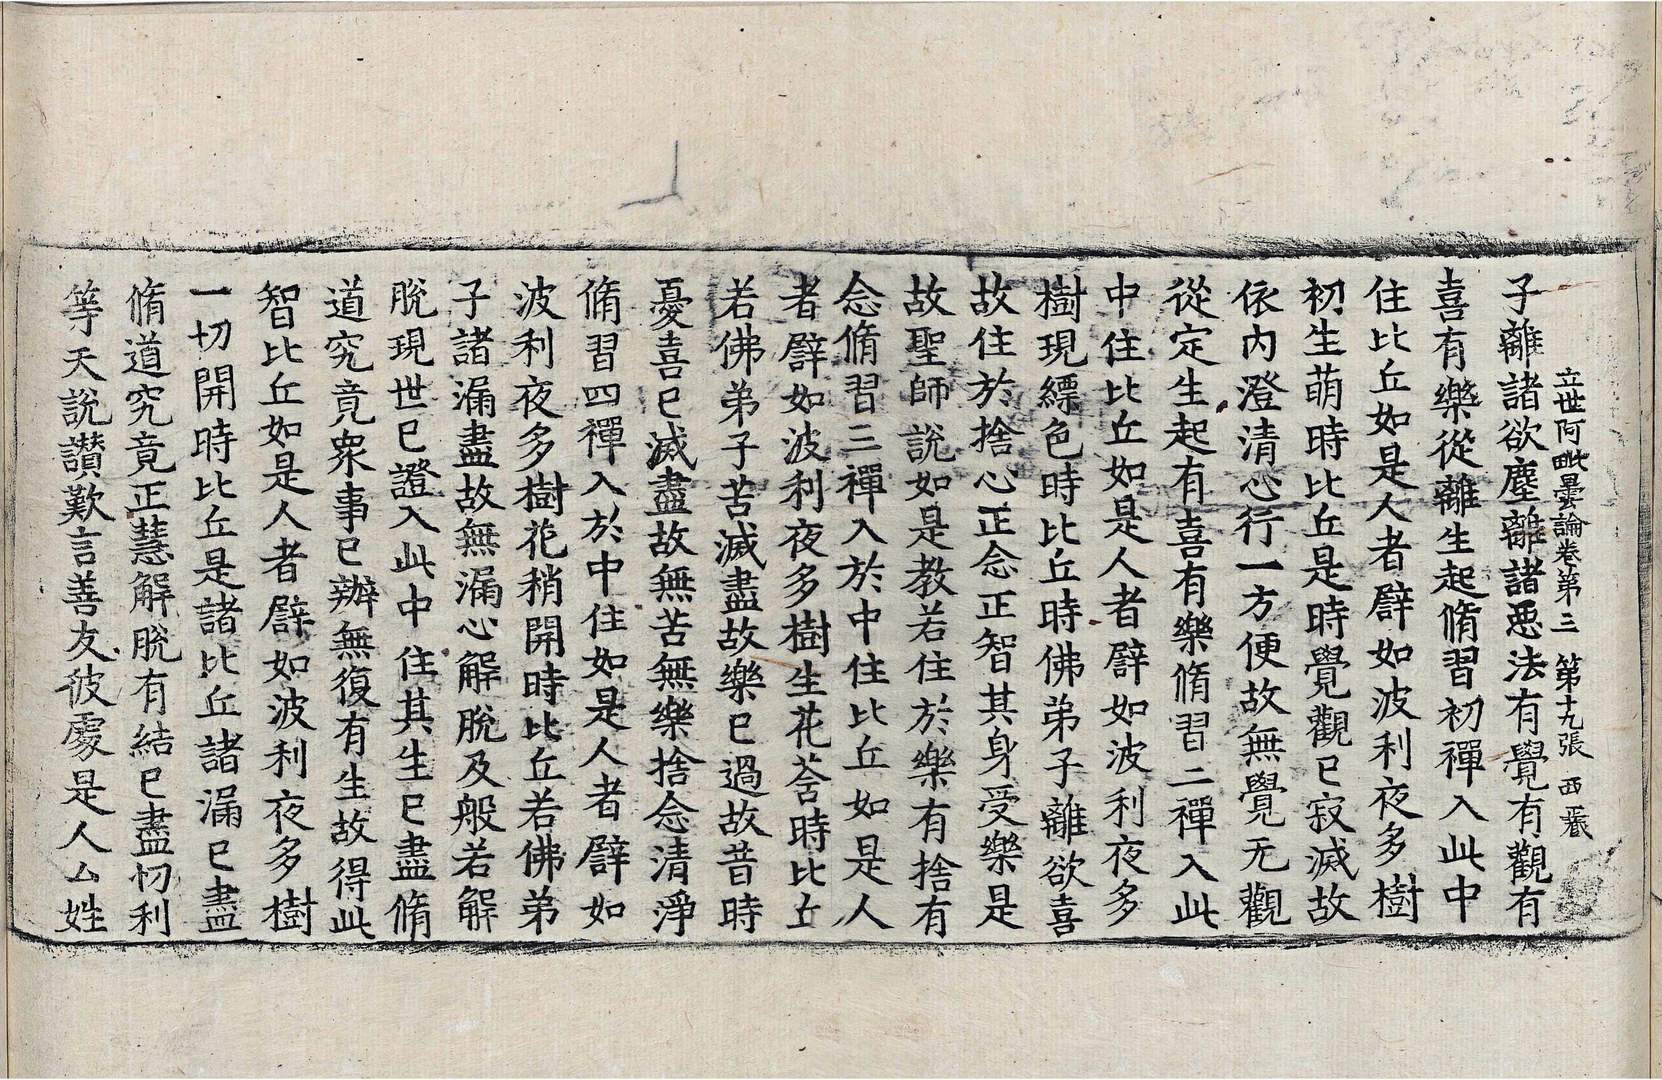 立世阿毗曇論卷第三　第十九張　西
子離諸欲塵離諸惡法有覺有觀有
喜有樂從離生起脩習初禪入此中
住比丘如是人者譬如波利夜多樹
初生萌時比丘是時覺觀已寂滅故
依內澄清心行一方便故無覺无觀
從定生起有喜有樂脩習二禪入此
中住比丘如是人者譬如波利夜多
樹現縹色時比丘時佛弟子離欲喜
故住於捨心正念正智其身受樂是
故聖師說如是教若住於樂有捨有
念脩習三禪入於中住比丘如是人
者譬如波利夜多樹生花荅時比丘
若佛弟子苦滅盡故樂已過故昔時
憂喜已滅盡故無苦無樂捨念清淨
脩習四禪入於中住如是人者譬如
波利夜多樹花稍開時比丘若佛弟
子諸漏盡故無漏心解脫及般若解
脫現世已證入此中住其生已盡脩
道究竟衆事已辦無復有生故得此
智比丘如是人者譬如波利夜多樹
一切開時比丘是諸比丘諸漏已盡
脩道究竟正慧解脫有結已盡忉利
等天說讚歎言善友彼處是人厶姓